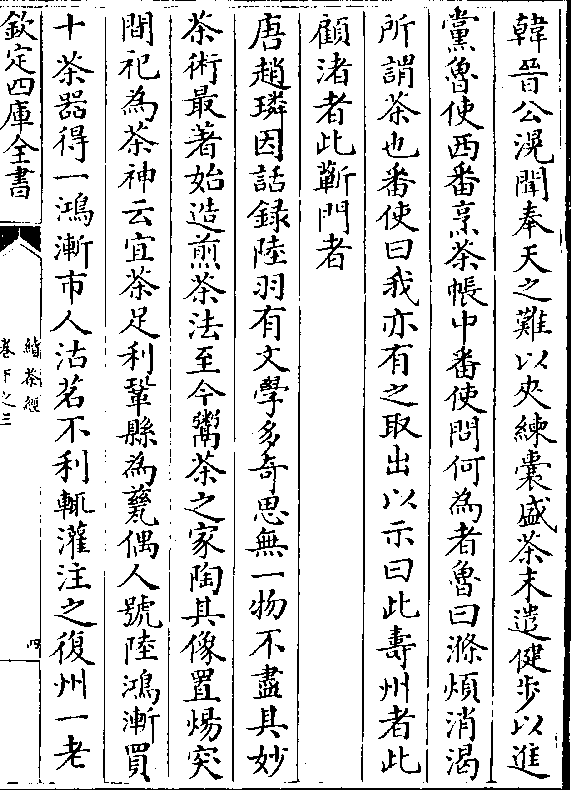 韓晉公滉聞奉天之難以夾練囊盛茶末遣健步以進
黨魯使西番烹茶帳中番使問何為者魯曰滌煩消渴
所謂茶也番使曰我亦有之取出以示曰此壽州者此
顧渚者此蘄門者
唐趙璘因話録陸羽有文學多奇思無一物不盡其妙
茶術最著始造煎茶法至今鬻茶之家陶其像置煬突
間祀為茶神云宜茶足利鞏縣為甆偶人號陸鴻漸買
十茶器得一鴻漸市人沽茗不利輒灌注之復州一老
欽定四庫全書
續茶經
卷下之三
四